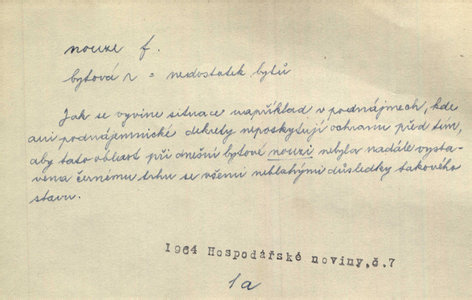 nouze f.
bytová n = nedostatek bytů
Jak se vyvine situace například v podnájmech, kde
ani podnájemnické dekrety neposkytují ochranu před tím,
aby tato oblast při dnešní bytové nouzi nebyla nadále vysta-
vena černému trhu se všemi neblahými důsledky takového
stavu.
1964 Hospodářské noviny, č. 7
1a